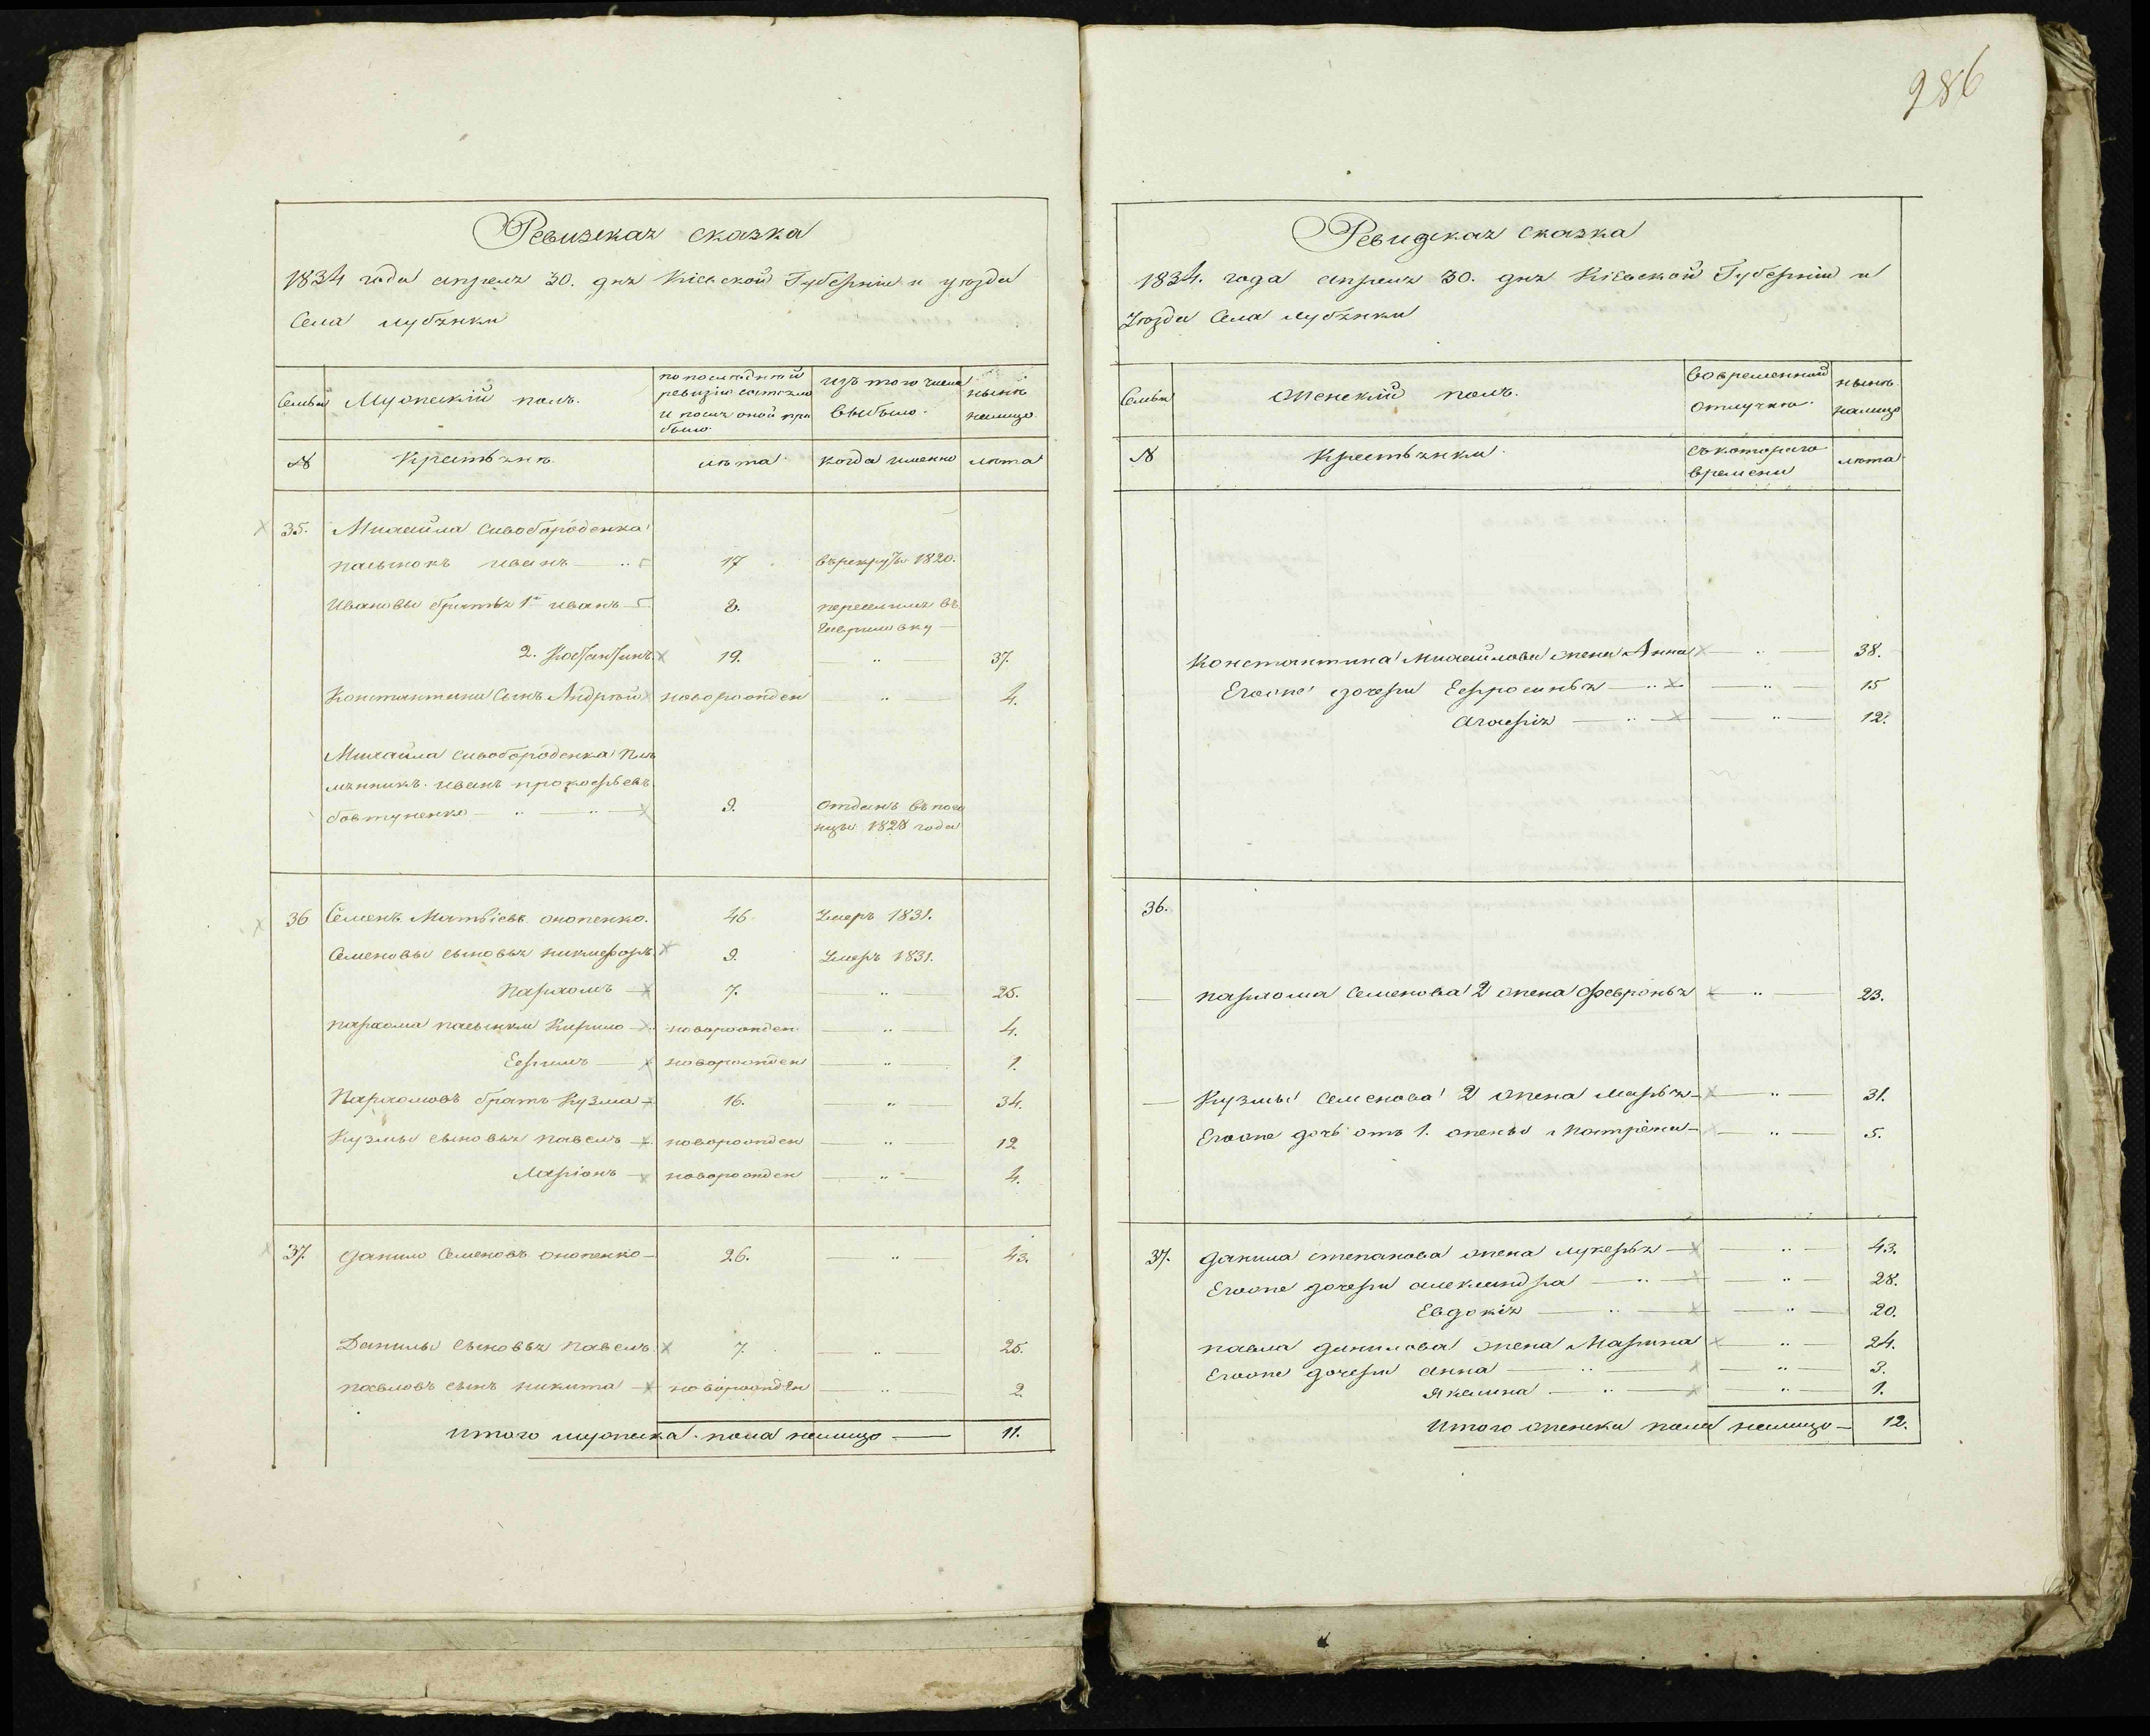 286
Ревизская сказка
1834 года апреля 30. дня Кіевской Губерніи и уезда
Села Лубянки
Семьи
Мужеский полъ.
по последней
ревизіи состояло
и после оной при
было
изъ того числа
выбыло.
ныне
налицо
№
Крестьяне
лета
когда именно
лета
35.
Михайла Сивобороденка
пасынокъ иванъ — 17 въ рекруты 1820.
Ивановы братья 1й иванъ — 8. переселился въ
Гавриловку —
2. Костантинъ 19. — „ — 37.
Константина Сынъ Андрей новорожден — „ — 4.
Михайла Сивобороденка пле
мянникъ иванъ прокофьевъ
бовтуненко — „ — „ — 9. отдан въ
1828 года
36 Семенъ Матвіевъ онопенко. 46 Умеръ 1831.
Семеновы сыновья никифоръ 9. Умеръ 1831.
Пархомъ — 7. „ 25.
пархома пасынки Кирило — новорожден — „ — 4.
Ефимъ — новорожден — „ — 1.
Пархомовъ братъ Кузма — 16. — „ — 34.
Кузмы сыновья павелъ — новорожден — „ — 12
Ларіонъ — новорожден — „ — 4.
37. Данило Семеновъ онопенко — 26. — „ 43.
Данилы сыновья павелъ 7. — „ 25.
павловъ сынъ никита — новорожден — „ — 2
итого мужеска пола налицо — 11.
Ревидская сказка
1834. года апреля 30. дня Кіевской Губерніи и
Уезда Села Лубянки
Семьи
Женский полъ.
во временной
отлучке.
ныне
налицо
№
Крестьянки.
съ котораго
времени
лета
Константина Михайлова жена Анна — „ — 38.
Егоже дочери Ефросинья — „ — „ — 15
Агафія — „ — „ — 12.
36.
— пархома Семенова 2 жена Февронья — „ — 23.
— Кузмы Семенова 2 жена Марья — „ — 31.
Егоже дочь отъ 1. жены Матрена — „ — 5.
37. Данила степанова жена лукерья — „ — 43.
Егоже дочери александра — „ — „ — 28.
Евдокія — „ — „ — 20.
павла данилова жена Марина „ — 24.
Егоже дочери анна „ — „ — 3.
Якилина — „ — „ — 1.
Итого женска пола налицо — 12.